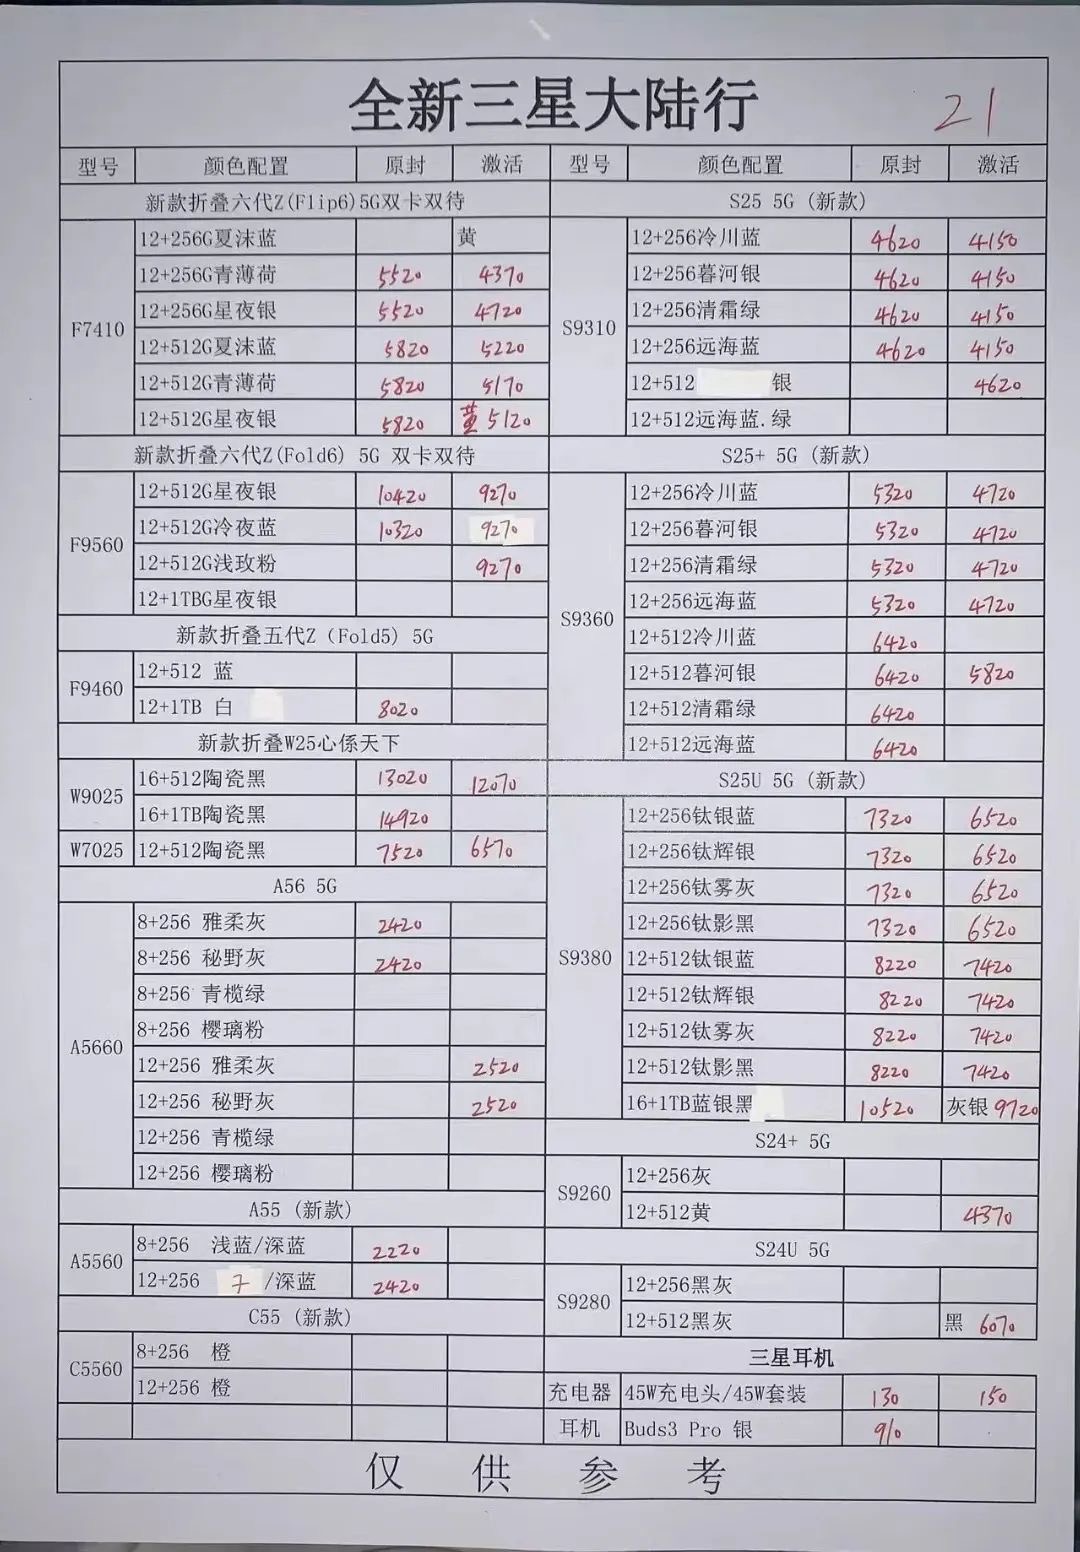 全新三星大陆行 21
型号 颜色配置 原封 激活 型号 颜色配置 原封 激活
新款折叠六代Z(Flip6)5G双卡双待
F7410
12+256G夏沫蓝 黄
12+256G青薄荷 5520 4370
12+256G星夜银 5520 4720
12+512G夏沫蓝 5820 5220
12+512G青薄荷 5820 5170
12+512G星夜银 5820 5120
新款折叠六代Z(Fold6) 5G 双卡双待
F9560
12+512G星夜银 10420 9270
12+512G冷夜蓝 10320 9270
12+512G浅玫粉 9270
12+1TBG星夜银
新款折叠五代Z（Fold5) 5G
F9460
12+512 蓝
12+1TB 白 8020
新款折叠W25心係天下
W9025
16+512陶瓷黑 13020 12070
16+1TB陶瓷黑 14920
W7025 12+512陶瓷黑 7520 6570
A56 5G
A5660
8+256 雅柔灰 2420
8+256 秘野灰 2420
8+256 青榄绿
8+256 樱璃粉
12+256 雅柔灰 2520
12+256 秘野灰 2520
12+256 青榄绿
12+256 樱璃粉
A55 (新款)
A5560
8+256 浅蓝/深蓝 2220
12+256 /深蓝 2420
C55 (新款)
C5560
8+256 橙
12+256 橙
S25 5G (新款)
S9310
12+256冷川蓝 4620 4150
12+256暮河银 4620 4150
12+256清霜绿 4620 4150
12+256远海蓝 4620 4150
12+512 银 4620
12+512远海蓝.绿
S25+ 5G (新款)
S9360
12+256冷川蓝 5320 4720
12+256暮河银 5320 4720
12+256清霜绿 5320 4720
12+256远海蓝 5320 4720
12+512冷川蓝 6420
12+512暮河银 6420 5820
12+512清霜绿 6420
12+512远海蓝 6420
S25U 5G (新款)
S9380
12+256钛银蓝 7320 6520
12+256钛辉银 7320 6520
12+256钛雾灰 7320 6520
12+256钛影黑 7320 6520
12+512钛银蓝 8220 7420
12+512钛辉银 8220 7420
12+512钛雾灰 8220 7420
12+512钛影黑 8220 7420
16+1TB蓝银黑 10520 灰银 9720
S24+ 5G
S9260
12+256灰
12+512黄 4370
S24U 5G
S9280
12+256黑灰
12+512黑灰 黑 6070
三星耳机
充电器 45W充电头/45W套装 130 150
耳机 Buds3 Pro 银 910
仅供参考